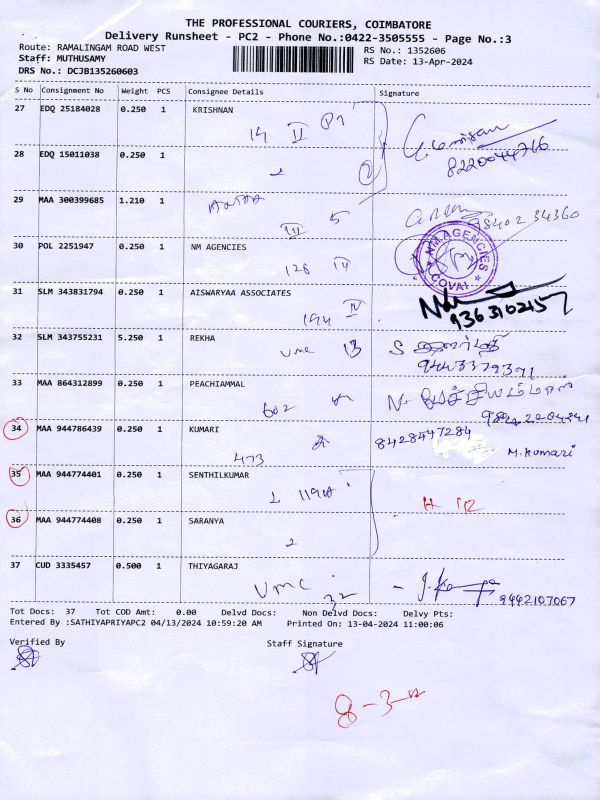 THE PROFESSIONAL COURIERS, COIMBATORE
Delivery Runsheet - PC2 - Phone No.:0422-3505555 - Page No.:3
Route: RAMALINGAM ROAD WEST
RS No.: 1352606
Staff: MUTHUSAMY
RS Date: 13-Apr-2024
DRS No.: DCJB135260603
S No Consignment No Weight PCS Consignee Details Signature
27 EDQ 25184028 0.250 1 KRISHNAN
14 II
8220044766
28 EDQ 15011038 0.250 1
29 MAA 300399685 1.210 1
III 5
9840234360
30 POL 2251947 0.250 1 NM AGENCIES
NM AGENCIES COVAI
126 IV
31 SLM 343831794 0.250 1 AISWARYAA ASSOCIATES
194 IV
9363102157
32 SLM 343755231 5.250 1 REKHA
vmc 13
9443379371
33 MAA 864312899 0.250 1 PEACHIAMMAL
602
34 MAA 944786439 0.250 1 KUMARI
8428547284
473
M. Kumari
35 MAA 944774401 0.250 1 SENTHILKUMAR
36 MAA 944774408 0.250 1 SARANYA
2
37 CUD 3335457 0.500 1 THIYAGARAJ
vmc 32
9442107067
Tot Docs: 37 Tot COD Amt: 0.00 Delvd Docs: Non Delvd Docs: Delvy Pts:
Entered By :SATHIYAPRIYAPC2 04/13/2024 10:59:20 AM Printed On: 13-04-2024 11:00:06
Verified By Staff Signature
8-3-